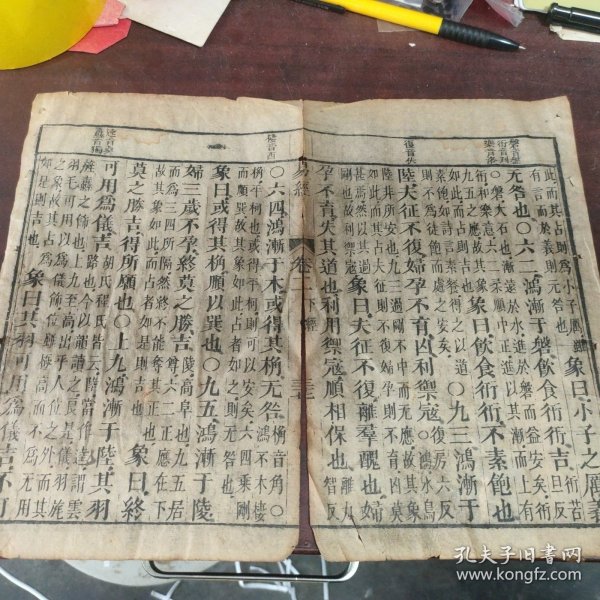 此而其占則爲小子厲雖
有言而於義則无咎也
象曰小子之厲義
无咎也○六二鴻漸于磐飲食衎衎吉
磐大石也漸遠於水進於磐而益安矣衎
衎和樂意六二柔順中正進以其漸而上有
九五之應故其象如此而占則吉也
象曰飲食衎衎不素飽也
素飽如詩言素餐得之以道
則不爲徒飽而處之安矣
○九三鴻漸于
陸夫征不復婦孕不育凶利禦寇
鴻水鳥
陸非所安也九三過剛不中而无應故其象
如此而其占夫征則不復婦孕則不育凶莫
甚焉然以其過剛也故利禦寇
象曰夫征不復離羣醜也婦
孕不育失其道也利用禦寇順相保也
復音伏
易經
卷
下經
○六四鴻漸于木或得其桷无咎
桷音角○
鴻不木棲
桷平柯也或得平柯則可以安矣六四乘剛
而順巽故其象如此占者如之則无咎也
象曰或得其桷順以巽也○九五鴻漸于陵
婦三歲不孕終莫之勝吉
陵高阜也九五居
尊六二正應在下
而爲三四所隔然終不能奪其正也
故其象如此而占者如是則吉也
象曰終
莫之勝吉得所願也○上九鴻漸于陸其羽
可用爲儀吉
胡氏程氏皆云陸當作逵謂雲
路也今以韻讀之良是儀羽旄
旌纛之飾也上九至高出乎人位之外而其
羽毛可用以爲儀飾位雖極高而不爲无用
之象故其占爲如是則吉也
象曰其羽可用爲儀吉不可
孔夫子旧書网
www.kongfz.com